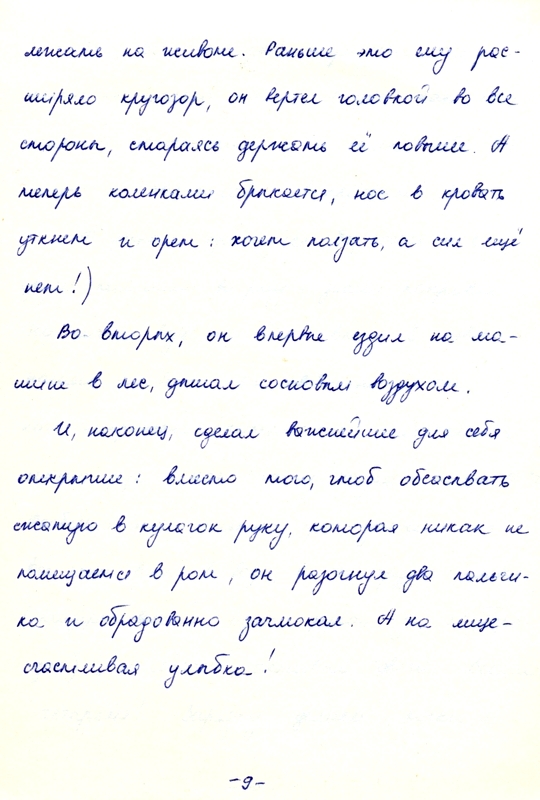 лежать на животе. Раньше это ему рас-
ширяло кругозор, он вертел головкой во все
стороны, стараясь держать её повыше. А
теперь коленками брыкается, нос в кровать
уткнет и орет: хочет ползать, а сил ещё
нет!)
Во-вторых, он впервые ездил на ма-
шине в лес, дышал сосновым воздухом.
И, наконец, сделал важнейшее для себя
открытие: вместо того, чтоб обсасывать
сжатую в кулачок руку, которая никак не
помещается в рот, он разогнул два пальчи-
ка и обрадованно зачмокал. А на лице-
счастливая улыбка!
-9-